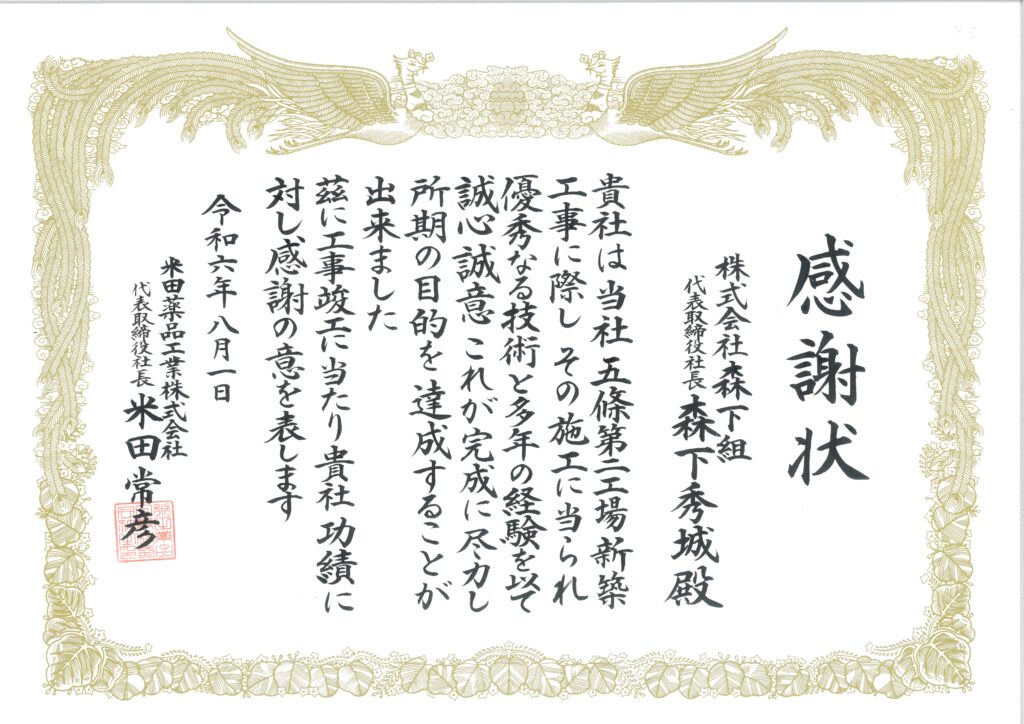 感謝状
株式会社森下組
代表取締役社長 森下秀城殿
貴社は当社 五條第二工場新築
工事に際し その施工に当られ
優秀なる技術と多年の経験を以て
誠心誠意 これが完成に尽力し
所期の目的を達成することが
出来ました
茲に工事竣工に当たり貴社功績に
対し感謝の意を表します
令和六年八月一日
米田薬品工業株式会社
代表取締役社長 米田常彦